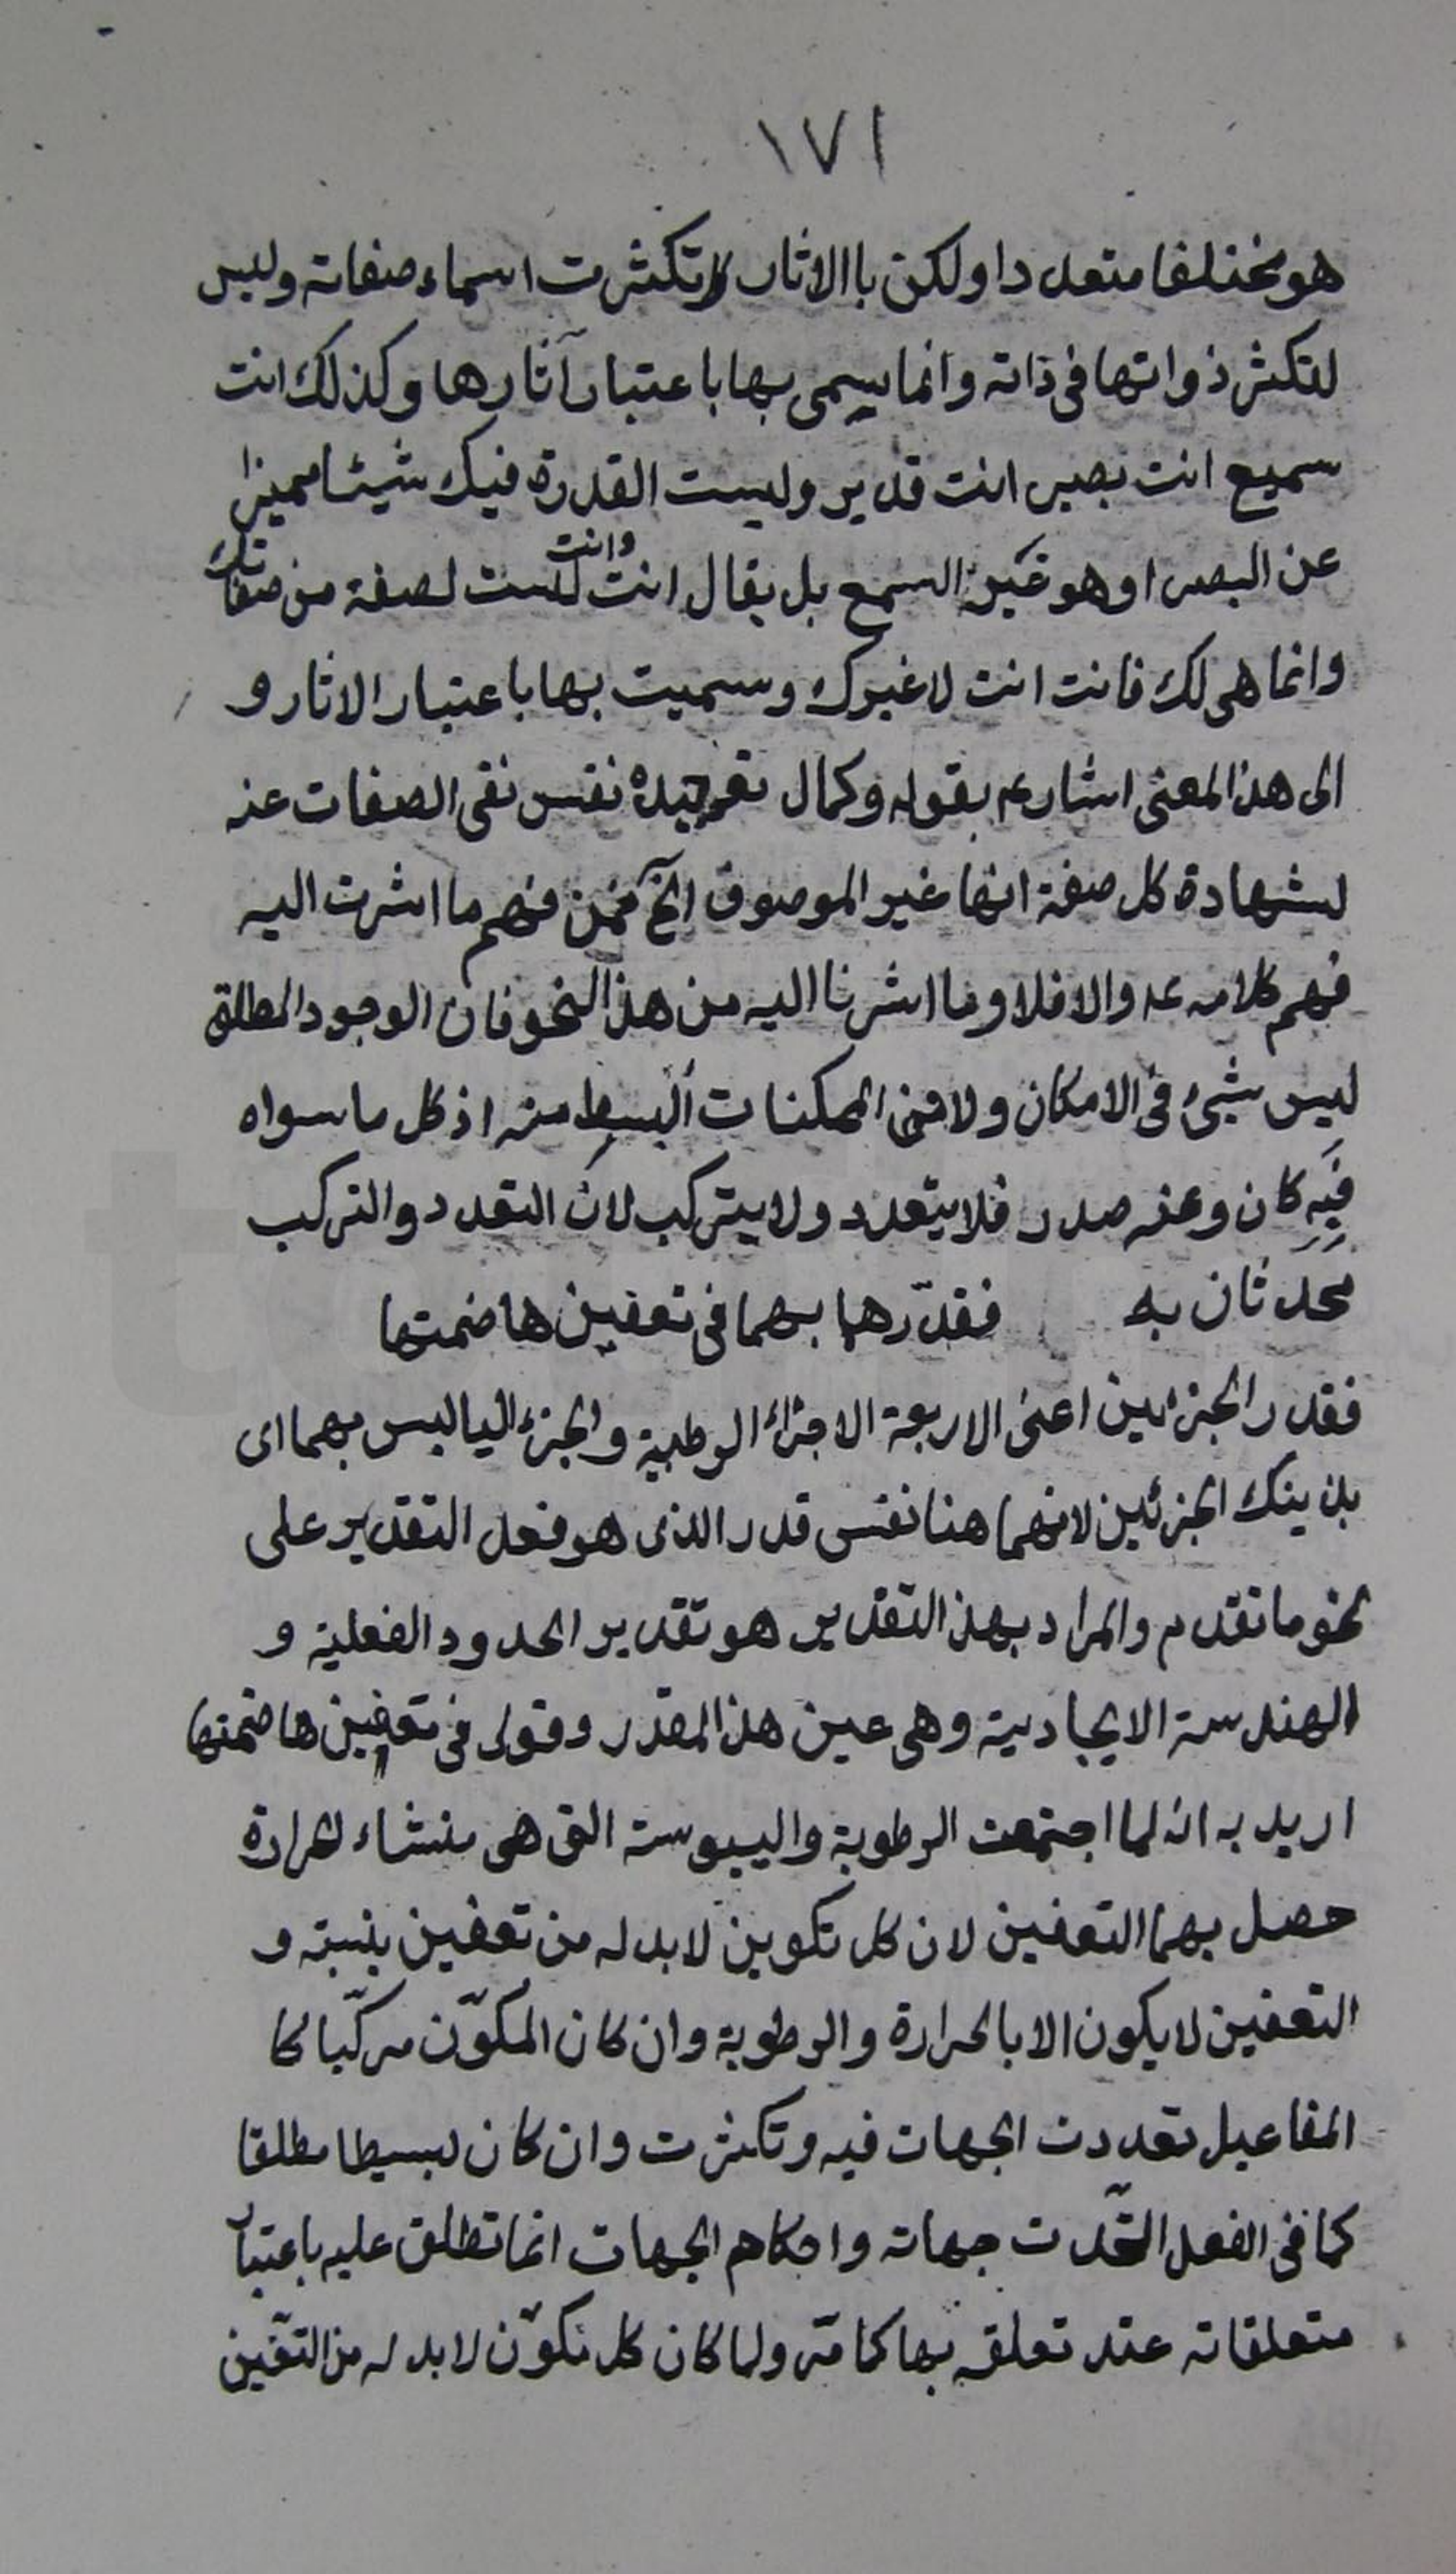 ١٧١
هو مختلفا متعددا ولكن باالاثار تكثرت اسماء صفاته وليس
لتكثر ذواتها فى ذاته وانما يسمى بها باعتبار آثارها وكذلك انت
سميع انت بصير انت قدير وليست القدرة فيك شيئا مميزا
عن البصر او هو غير السمع بل يقال انت وانت لست لصفة من صفاتك
وانما هى لك فانت انت لا غيرك وسميت بها باعتبار الاثار و
الى هذا المعنى اشار ع بقوله وكمال توحيده نفس نفى الصفات عنه
لشهادة كل صفة انها غير الموصوف الخ فمن فهم ما اشرت اليه
فهم كلامه ع والا فلا وما اشرنا اليه من هذا النحو فان الوجود المطلق
ليس شيئ فى الامكان ولا فى الممكنات ابسط منه اذ كل ما سواه
فيه كان وعنه صدر فلا يتعدد ولا يتركب لان التعدد والتركب
محدثان به فقدّرها بهما فى تعفين هاضمتها
فقدر الجزئين اعنى الاربعة الاجزاء الرطبية والجزء اليابس بهما اى
بذينك الجزئين لانهما هنا نفس قدر الذى هو فعل التقدير على
نحو ما تقدم والمراد بهذا التقدير هو تقدير الحدود الفعلية و
الهندسة الايجادية وهى عين هذا المقدر وقولى فى تعفين هاضمتها
اريد به انه لما اجتمعت الرطوبة واليبوسة التى هى منشاء الحرارة
حصل بهما التعفين لان كل تكوين لا بد له من تعفين بنسبته و
التعفين لا يكون الا بالحرارة والرطوبة وان كان المكوّن مركّبا كا
المفاعيل تعددت الجهات فيه وتكثرت وان كان بسيطا مطلقا
كما فى الفعل اتّحدت جهاته واحكام الجهات انما تطلق عليه باعتبار
متعلقاته عند تعلقه بها كما مّر ولما كان كل تكوّن لا بد له من التعفين